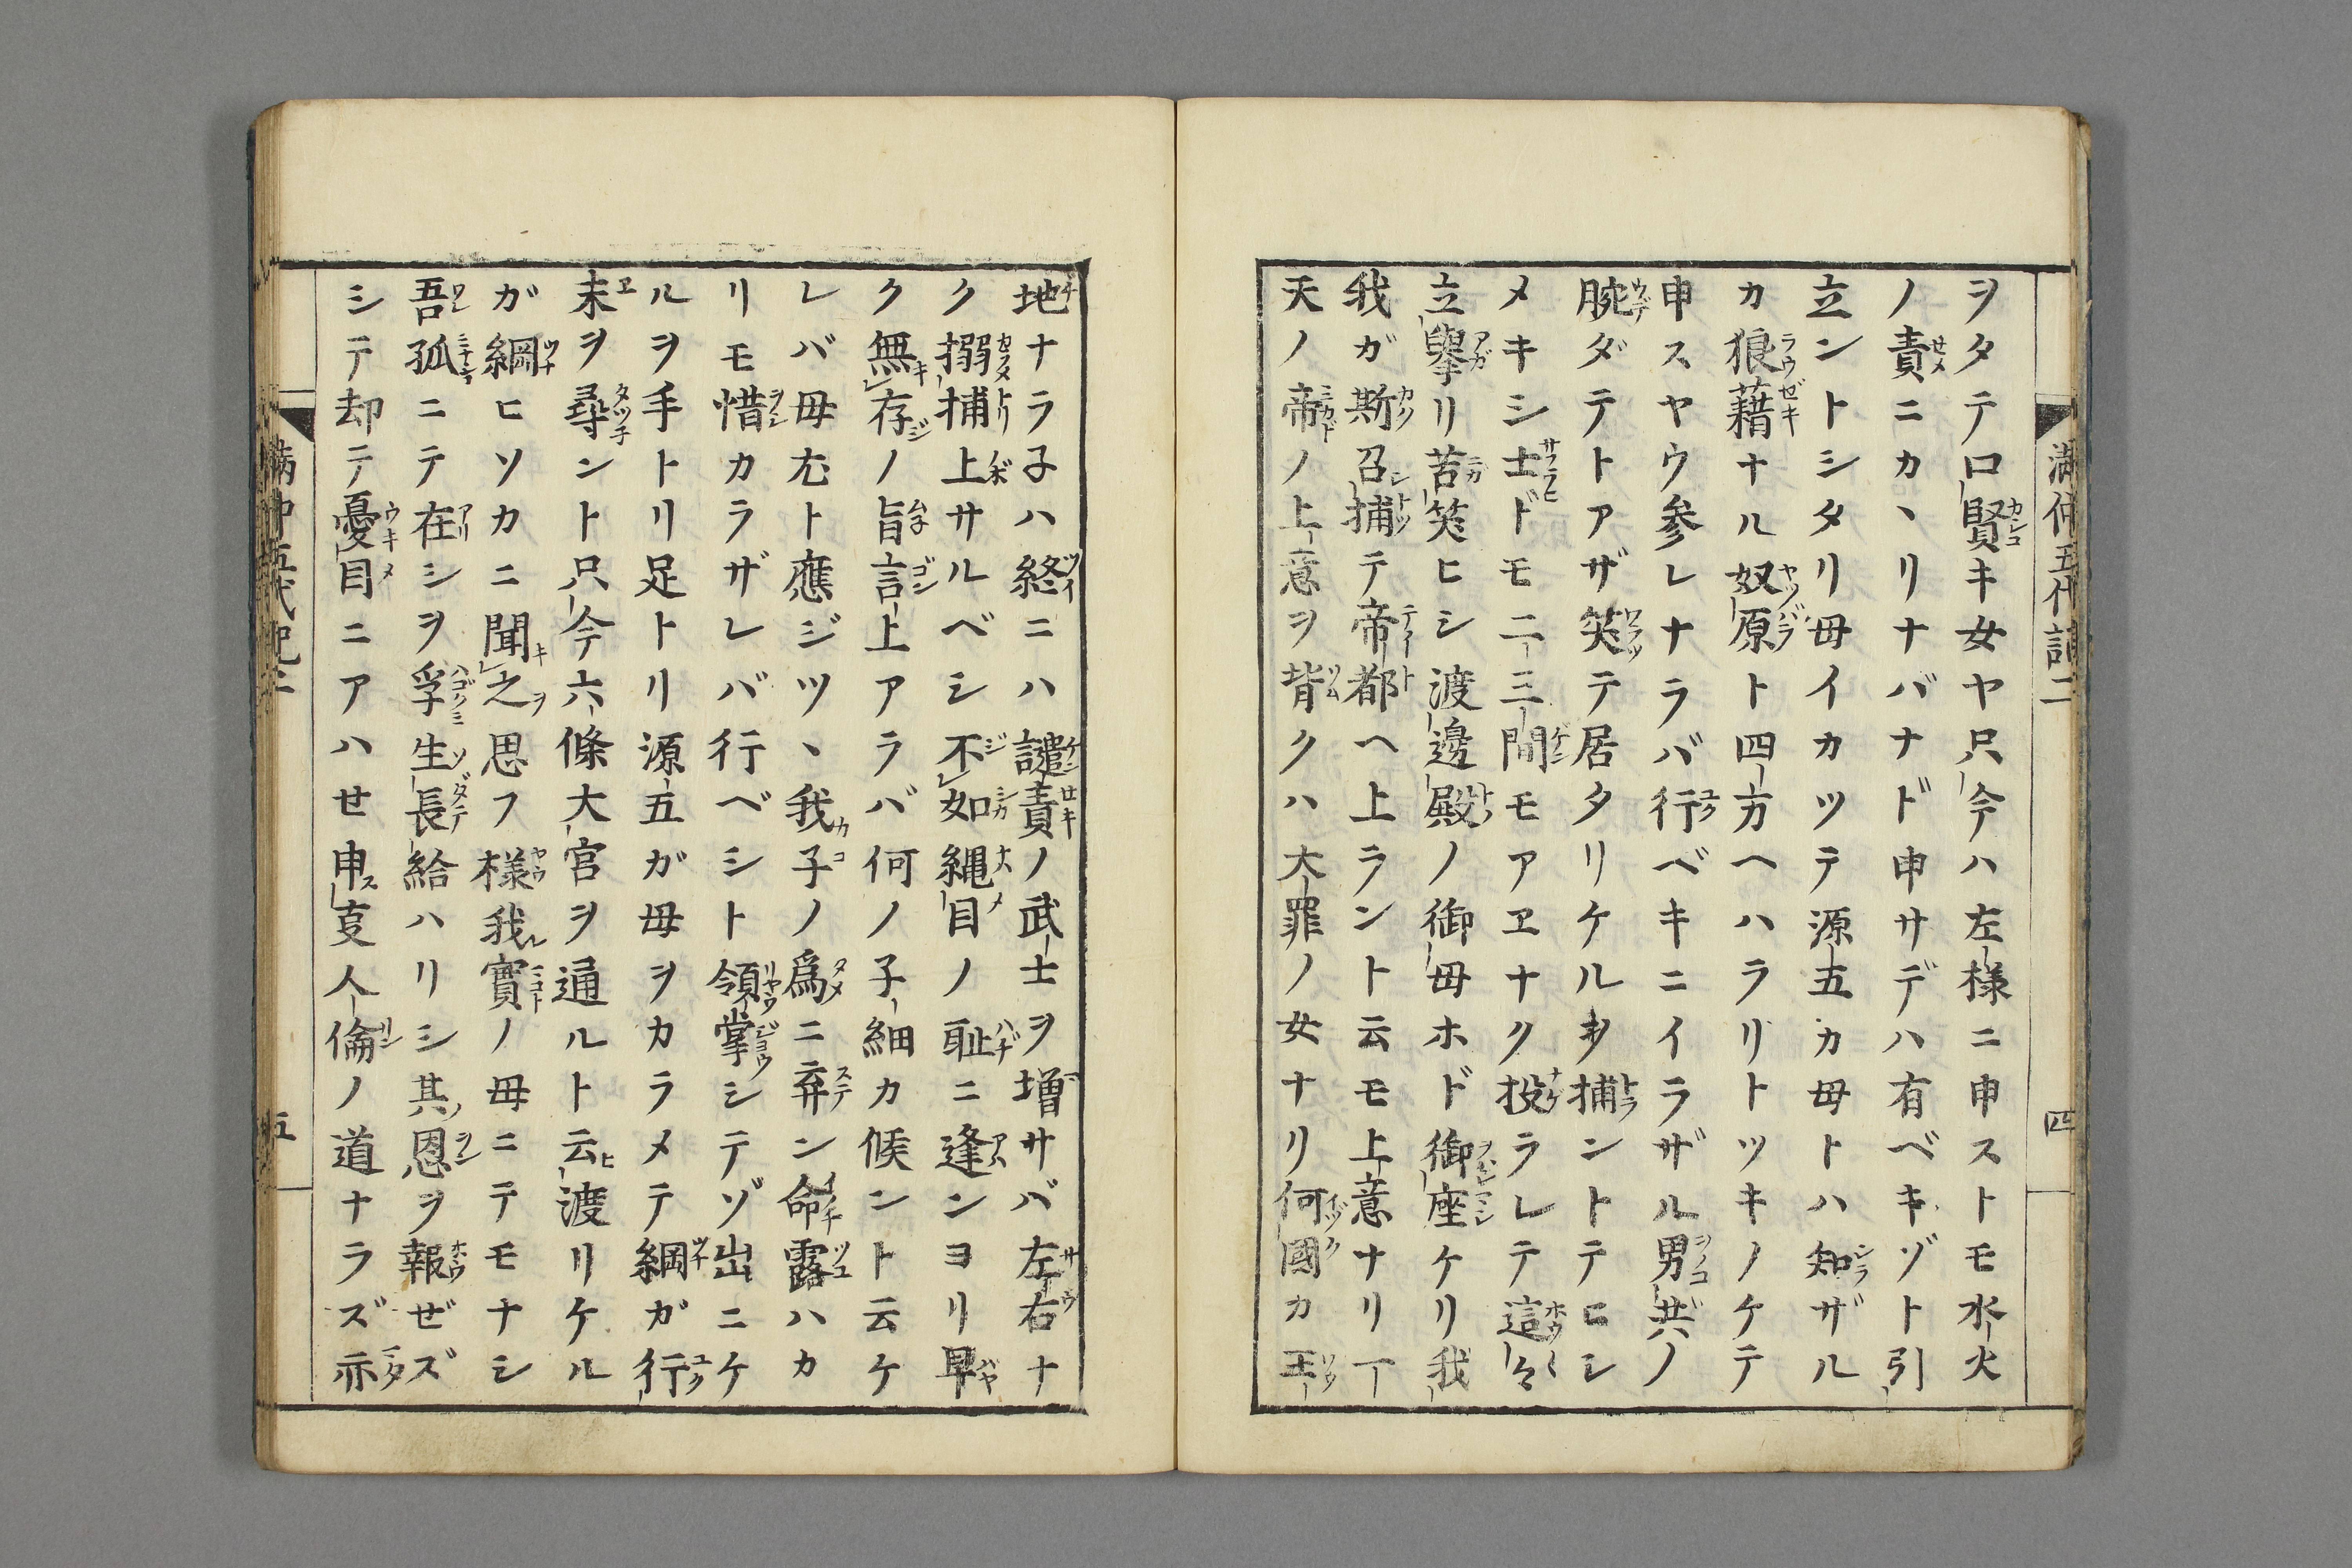 満仲五代記二
四
ヲタテ口賢キ女ヤ只今ハ左様ニ申ストモ水火
ノ責ニカヽリナバナド申サデハ有ベキゾト引
立ントシタリ母イカツテ源五カ母トハ知ザル
カ狼藉ナル奴原ト四方ヘハラリトツキノケテ
申スヤウ参レナラバ行ベキニイラザル男共ノ
腕ダテトアザ笑テ居タリケルヲ捕ントテヒシ
メキシ士ドモ二三間モアヱナク投ラレテ這々
立擧リ苦笑ヒシ渡邊殿ノ御母ホド御座ケリ我
我ガ斯召捕テ帝都ヘ上ラント云モ上意ナリ一
天ノ帝ノ上意ヲ背クハ大罪ノ女ナリ何國カ王
地ナラ子ハ終ニハ譴責ノ武士ヲ増サバ左右ナ
ク搦捕上サルベシ不如縄目ノ耻ニ逢ンヨリ早
ク無存ノ旨言上アラバ何ノ子細カ候ント云ケ
レバ母尤ト應ジツヽ我子ノ爲ニ弃ン命露ハカ
リモ惜カラザレバ行ベシト領掌シテゾ出ニケ
ルヲ手トリ足トリ源五ガ母ヲカラメテ綱ガ行
末ヲ尋ント只今六條大宮ヲ通ルト云渡リケル
ガ綱ヒソカニ聞之思フ様我實ノ母ニテモナシ
吾孤ニテ在シヲ孚生長給ハリシ其恩ヲ報ぜズ
シテ却テ憂目ニアハせ申叓人倫ノ道ナラズ亦
満仲五代記二
五